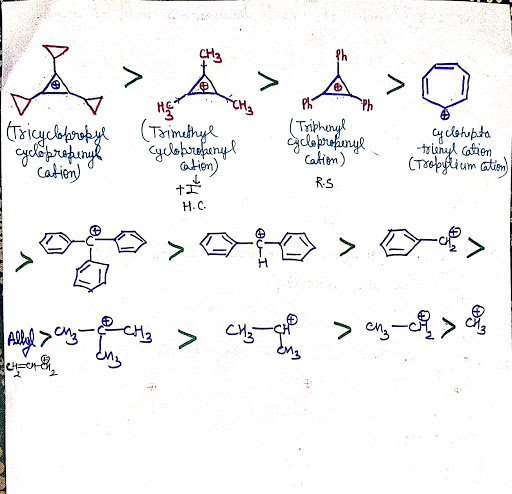 CH3
Ph
⊕ > ⊕ > ⊕ > ⊕
H3C CH3 Ph Ph
(Tricyclopropyl cyclopropenyl Cation)
(Trimethyl cyclopropenyl Cation)
(Triphenyl cyclopropenyl Cation)
cyclohepta trienyl Cation (Tropylium Cation)
↓
+I
H.C.
R.S
> C⊕ > C⊕ H > CH2⊕ >
Allyl > CH3-C⊕-CH3 > CH3-CH⊕ > CH3-CH2⊕ > CH3⊕
CH2=CH-CH2⊕ CH3 CH3